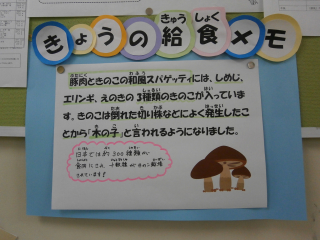 きょうの給食メモ
きゅう しょく
豚肉ときのこの和風スパゲッティには、しめじ、
エリンギ、えのきの3種類のきのこが入っていま
す。きのこは倒れた切り株などによく発生したこ
とから「木の子」と言われるようになりました。
日本では約300種類が